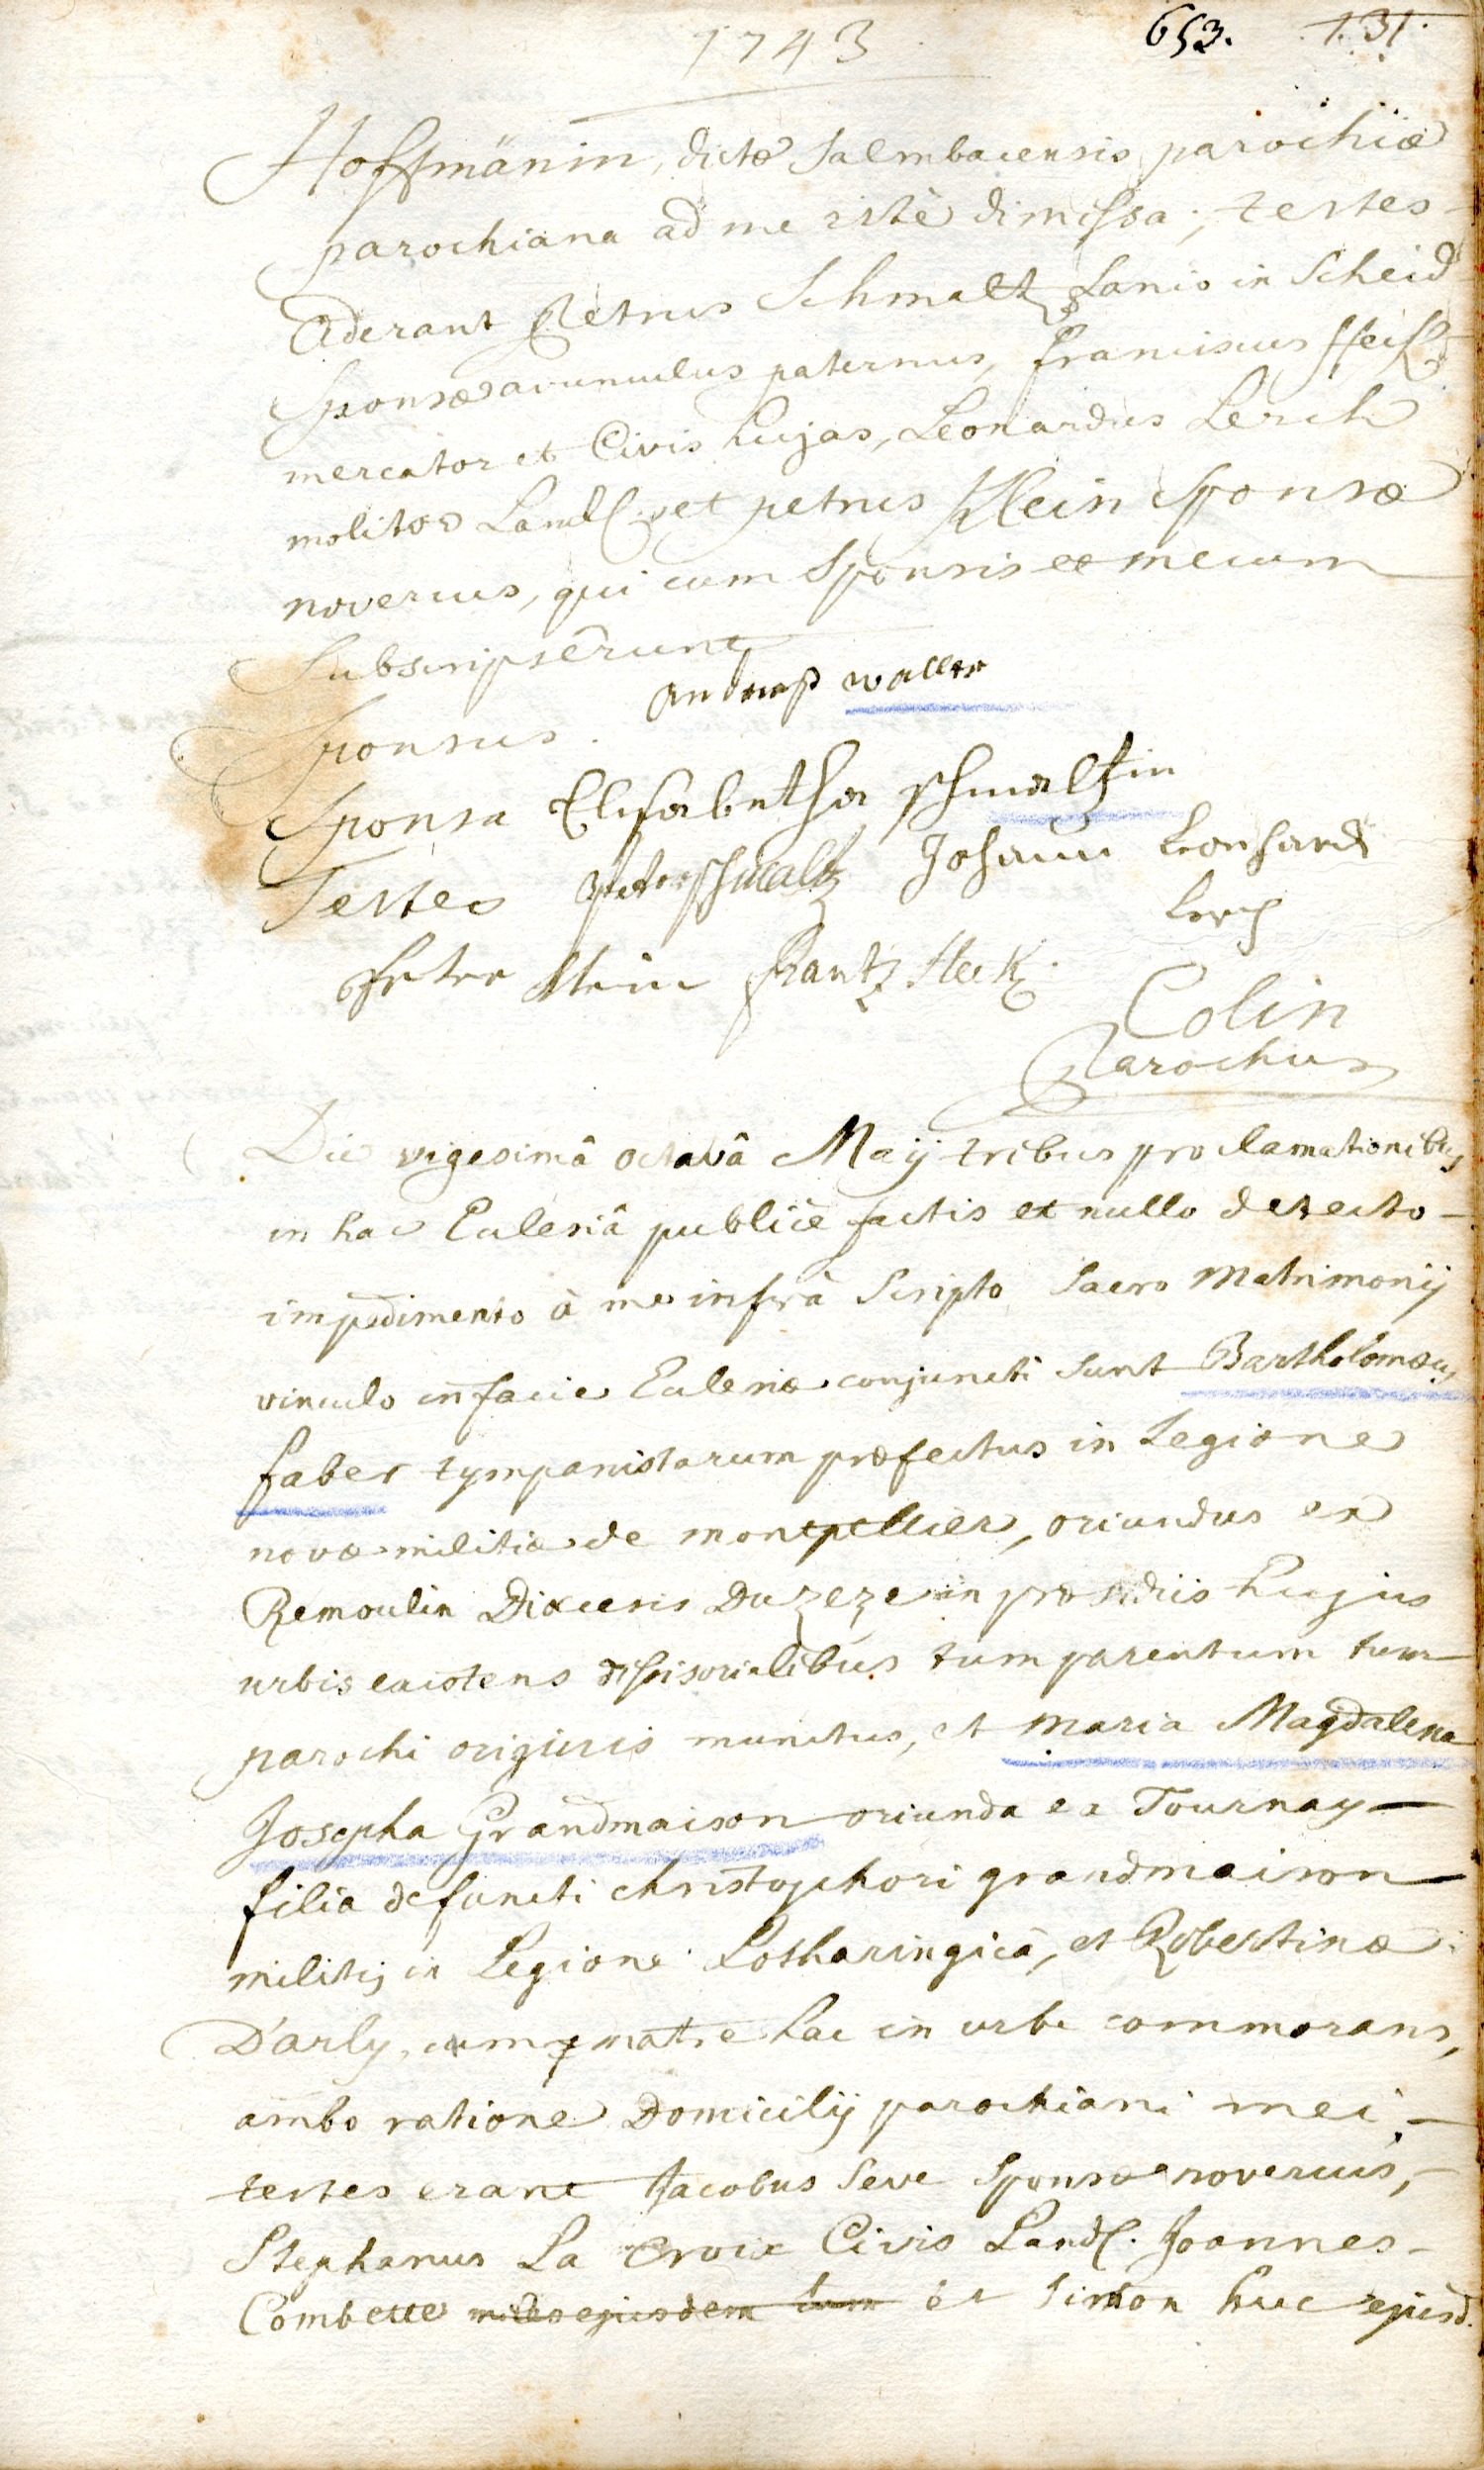 1743
653. 131.
Hoffmänin, dictæ Salmbacensis parochiæ
parochiana ad me ritè dimissa; testes
aderant Petrus Schmaltz Lanio in Scheid
Sponsæ avunculus paternus, Franciscus
mercator et Civis hujas, Leonardus Lerch
molitor Land. et petrus Klein Sponsæ
novercus, qui cum Sponsis et mecum
Subscripserunt
Sponsus. andreas waller
Sponsa Elisabetha schmaltzin
Testes peter schmaltz Johann Leonhard
Lerch
peter klein frantz fleck
Colin
Parochus
Die vigesimâ octavâ Maij tribus proclamationibus
in hac Eclesiâ publicè factis et nullo detecto
impedimento à me infrà Scripto Sacro Matrimonij
vinculo in facie Eclesiæ conjuncti Sunt Bartholomæus
faber tympanistarum præfectus in Legione
novæ militiæ de montpellier, oriundus ex
Remoulin Diœcesis Duzeze in præsidiis hujus
urbis existens tum parentum tum
parochi originis munitus, et Maria Magdalena
Josepha Grandmaison oriunda ex Tournay
filia defuncti christophori grandmaison
militis in Legione Lotharingicâ, et Robertinæ
D'arly, cum matre hac in urbe commorans,
ambo ratione Domicilij parochiani mei,
testes erant Jacobus Seve Sponsæ novercus,
Stephanus La Croix Civis Land. Joannes
Combette miles ejusdem et Simon huc ejusd.